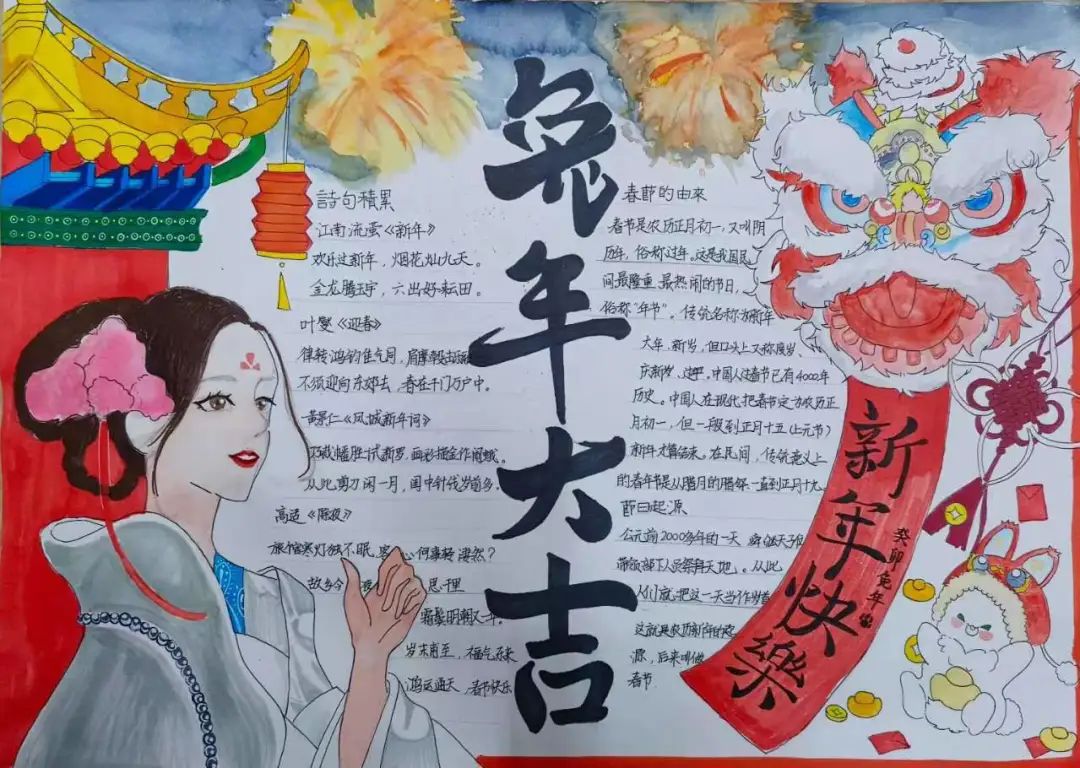 兔年大吉
詩句積累
江南流萤《新年》
欢乐过新年，烟花灿九天。
金龙腾玉宇，六出好耘田。
叶燮《迎春》
律转鸿钧佳气同，肩摩毂击
不须迎向东郊去，春在千门万户中。
黄景仁《凤城新年词》
巧裁幡胜试新罗，画彩描金作闹蛾。
从此剪刀闲一月，闺中针线岁前多。
高适《除夜》
旅馆寒灯独不眠，客心何事转凄然？
故乡今夜思千里
霜鬓明朝又一年。
岁末甫至，福气东来
鸿运通天，春节快乐
春節的由來
春节是农历正月初一，又叫阴
历年，俗称过年。这是我国民
间最隆重、最热闹的节日，
俗称"年节"。传统名称为新年
大年，新岁，但口头上又称度岁、
庆新岁、过年。中国人过春节已有4000年
历史。中国人在现代把春节定为农历正
月初一，但一般到正月十五(上元节)
新年才算结束。在民间，传统意义上
的春节是从腊月的腊祭一直到正月十九
節日起源
公元前2000多年的一天，舜天子位
带领部下人员祭拜天地。从此
人们就把这一天当作岁首
这就是农历新年的起
源，后来叫做
春节
新年快樂
癸卯兔年